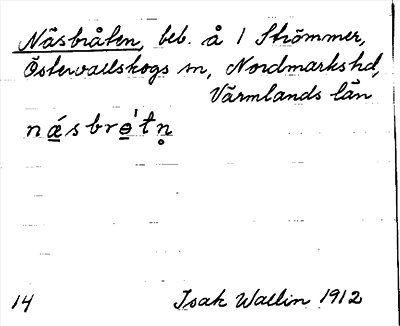 Näsbråten, beb. å 1 Strömmer,
Östervallskogs sn, Nordmarks hd,
Värmlands län
nǽ̲sbrɵ̲̀tn̥
14 Isak Wallin 1912